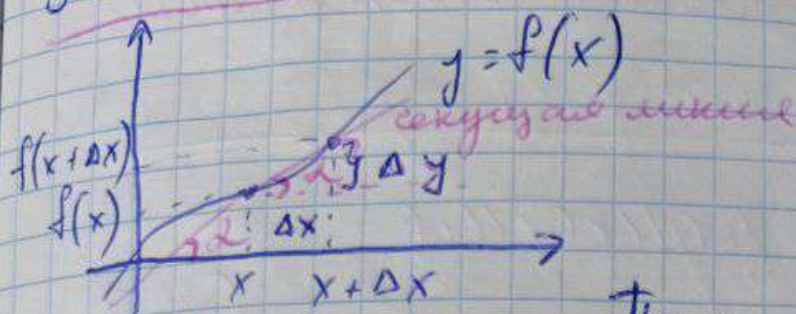 y = f(x)
секущая линия
f(x+Δx)
Δy
f(x)
α
Δx
x x+Δx